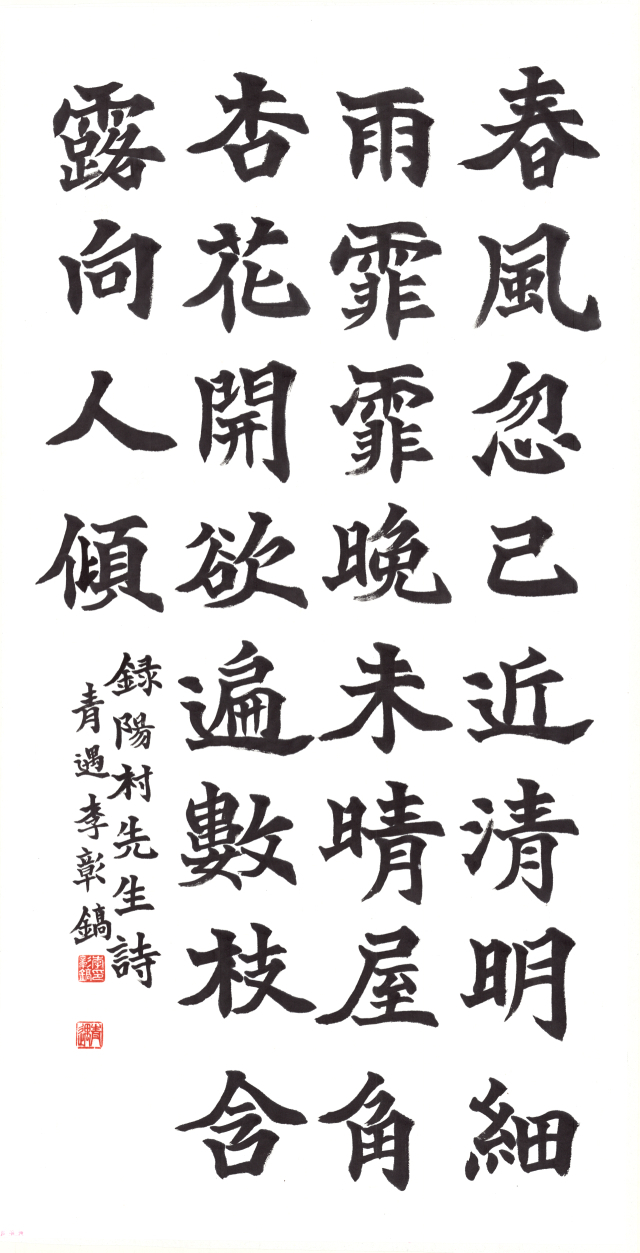 春風忽已近清明細
雨霏霏晚未晴屋角
杏花開欲遍數枝含
露向人傾
錄陽村先生詩
青遇李彰鎬